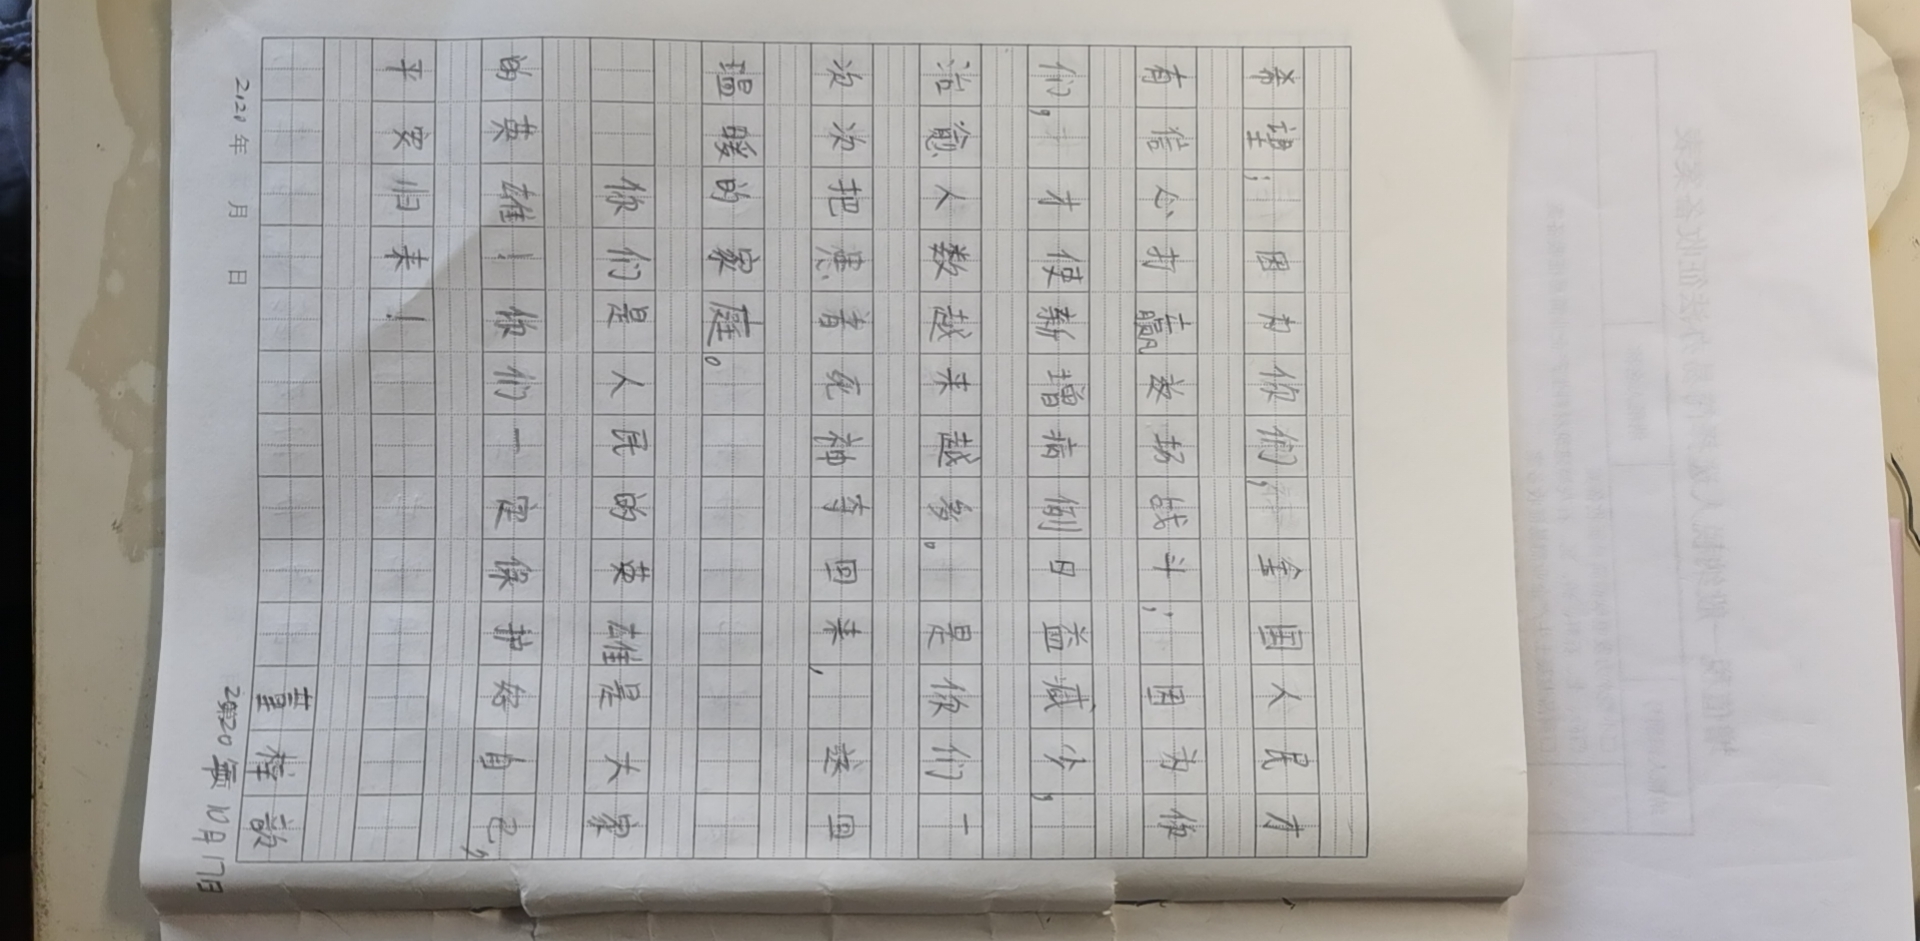 希望;因为你们,全国人民才
有信心打赢这场战斗;因为你
们,才使新增病例日益减少,
治愈人数越来越多。是你们一
次次把患者死神夺回来,送回
温暖的家庭。
你们是人民的英雄是大家
的英雄!你们一定保护好自己,
平安归来!
年 月 日